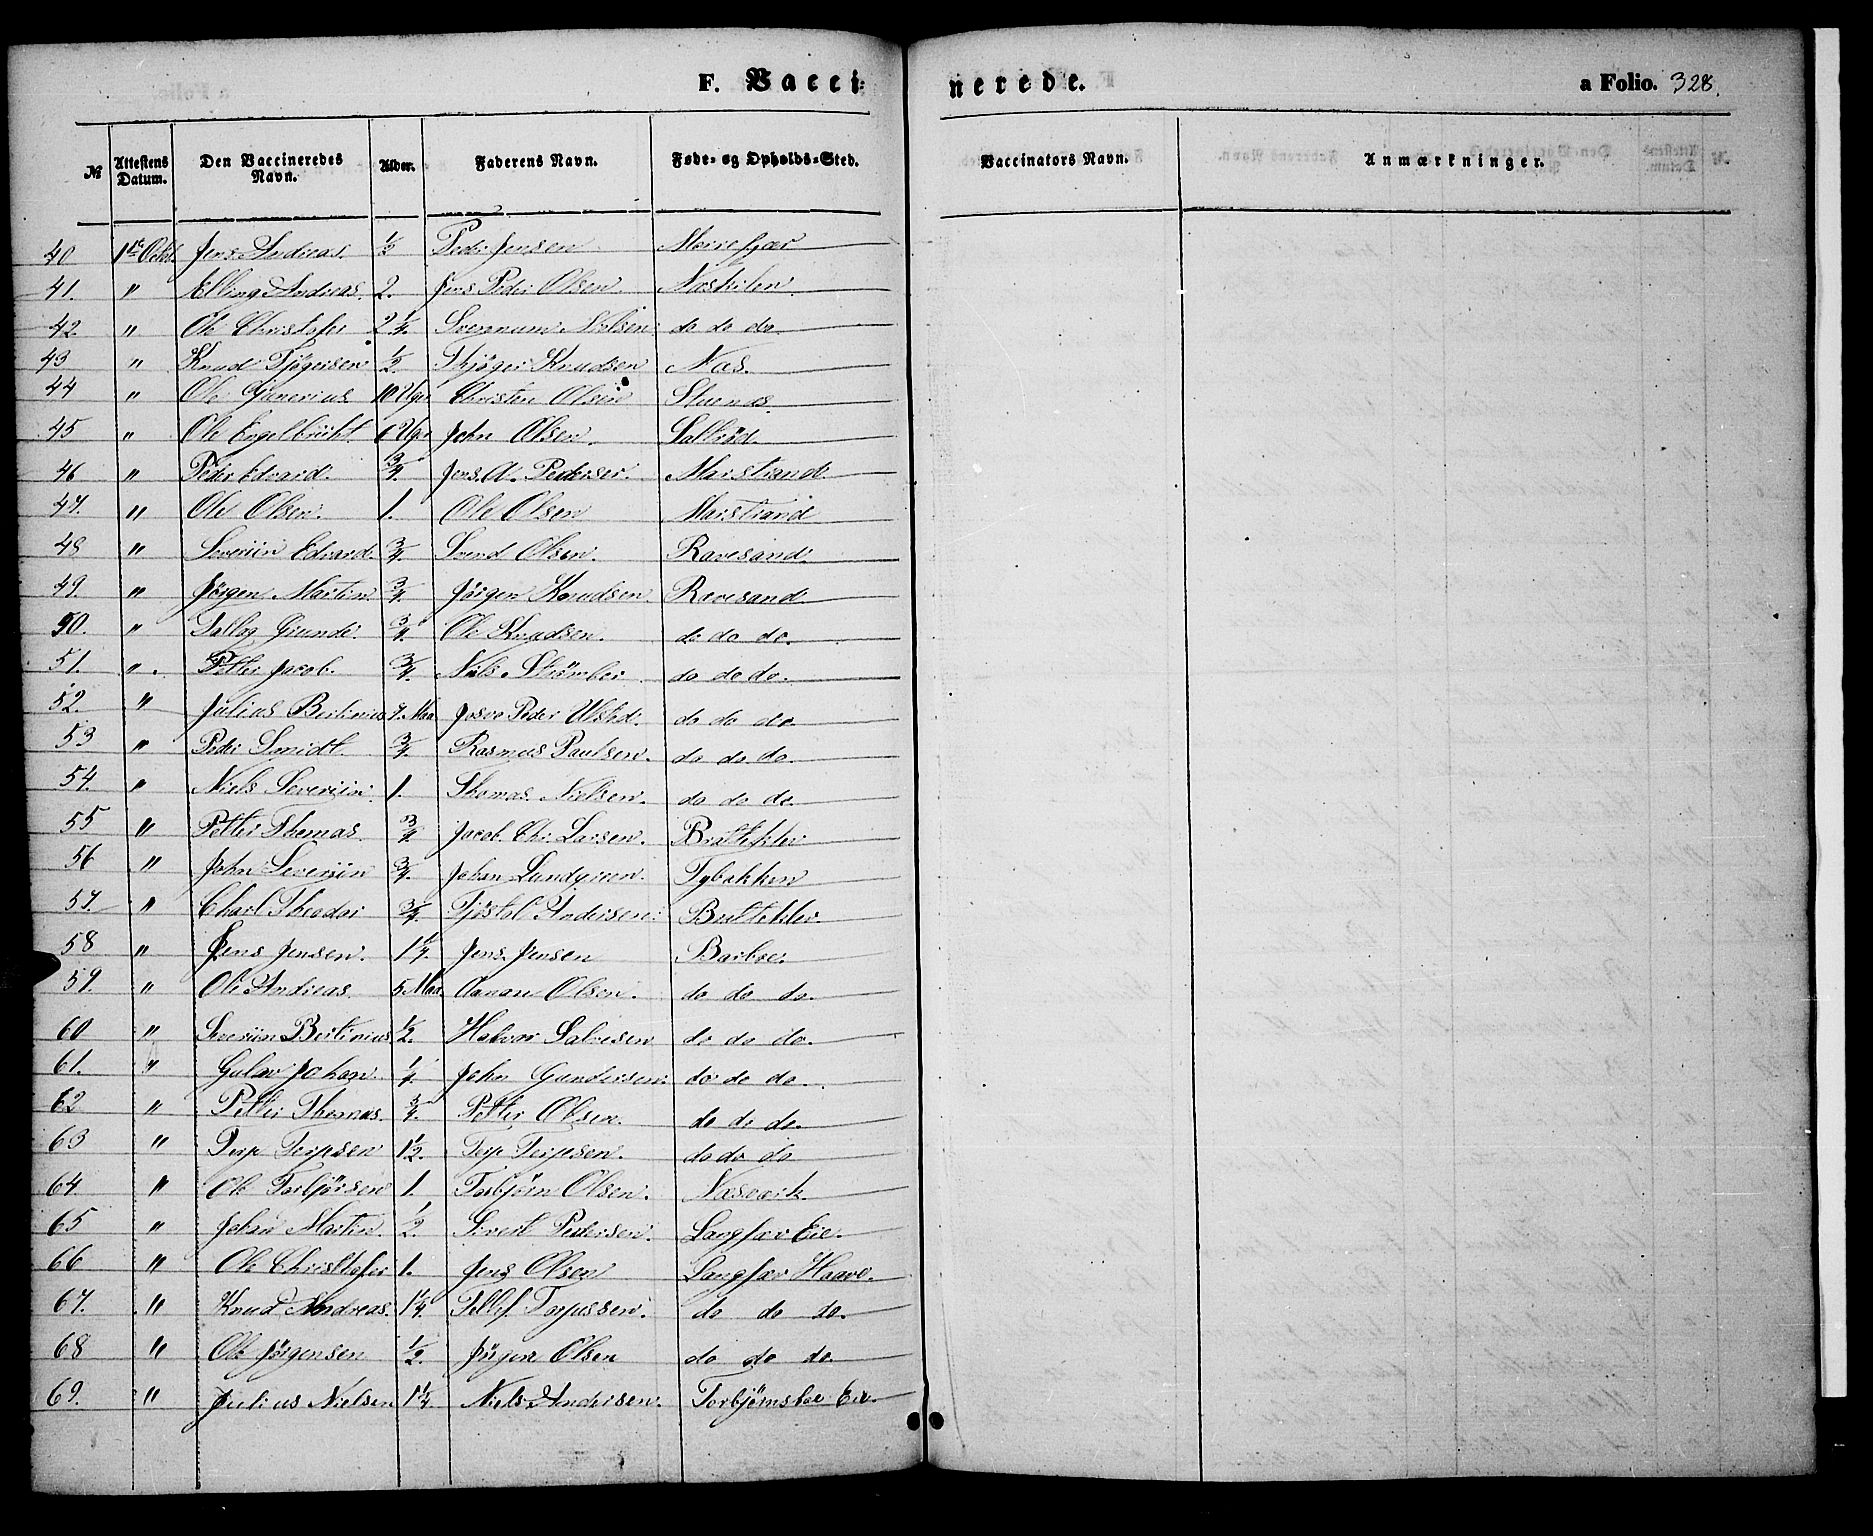 F. Vacci-nerede. a Folio. 328.
№ Attestens Datum. Den Vaccineredes Navn. Alder. Faderens Navn. Føde- og Opholds-Sted. Vaccinators Navn. Anmærkninger.
40 1ste Octb. Jens Andreas. Peder Jensen
41. " Elling Andreas. 2. Jens Peder Olsen. Naskilen
42. " Ole Christofer 2 1/4. Nielsen do do do.
43 " Knud Tjøgersen 1/2 Thjøger Knudsen Næs.
44 " Ole 10 Uger Christen Olsen Stuenæs.
45 " Ole Engelbrikt. 6 Uger John Olsen. Saltrød.
46 " Peder Edvard. 3/4. Jens. A. Pedersen. Marstrand
47. " Ole Olsen. 1. Ole Olsen Marstrand
48 " Severiin Edvard. 3/4. Svend Olsen. Ravesand.
49. " Jørgen Martin. 3/4. Jørgen Knudsen. Ravesand
50. " Gunde. 3/4. Ole Knudsen. do do do.
51. " Petter Jacob. 3/4. Niels do do do.
52. " Julius Bertinius 7. Maa. Peder do do do.
53 " Peder Smidt. 3/4. Rasmus Paulsen. do do do.
54. " Niels Severiin. 1. Thomas Nielsen. do do do.
55 " Petter Thomas. 3/4 Jacob. Chr. Larsen. Bratteklev
56 " John Severiin 3/4. Johan Lundgreen. Tybakken
57. " Charl Theodor 3/4. Tjøstol Andersen. Bratteklev.
58 " Jens Jensen. 1 1/4. Jens Jensen Barboe.
59. " Ole Andreas 5 Maa. Aanon Olsen. do do do.
60 " Severiin Bertinius 1/2. Halvor Salvesen do do do.
61. " Johan. 1/4. John Gundersen. do do do.
62 " Petter Thomas. 3/4. Petter Olsen. do do do.
63 " Terje Terjesen 1 1/2. Terje Terjesen. do do do
64. " Ole Torbjørsen 1. Torbjørn Olsen. Næsværk.
65 " Johan Martin. 1/2. Sivert Pedersen. Langsæv Eie.
66 " Ole Christtofer 1. Jens Olsen Langsæv Haave.
67. " Knud Andreas. 1 1/4. Tellef Torjussen. do do do.
68 " Ole Jørgensen 1/2. Jørgen Olsen do do do
69. " Julius Nielsen 1 1/4. Niels Andersen. Eie.